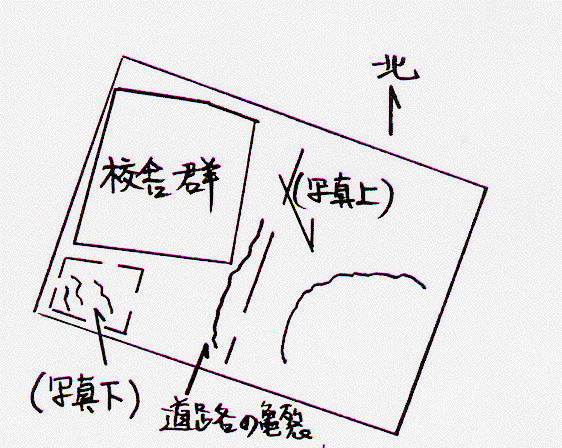 北
校舎群
(写真上)
(写真下)
道路の亀裂